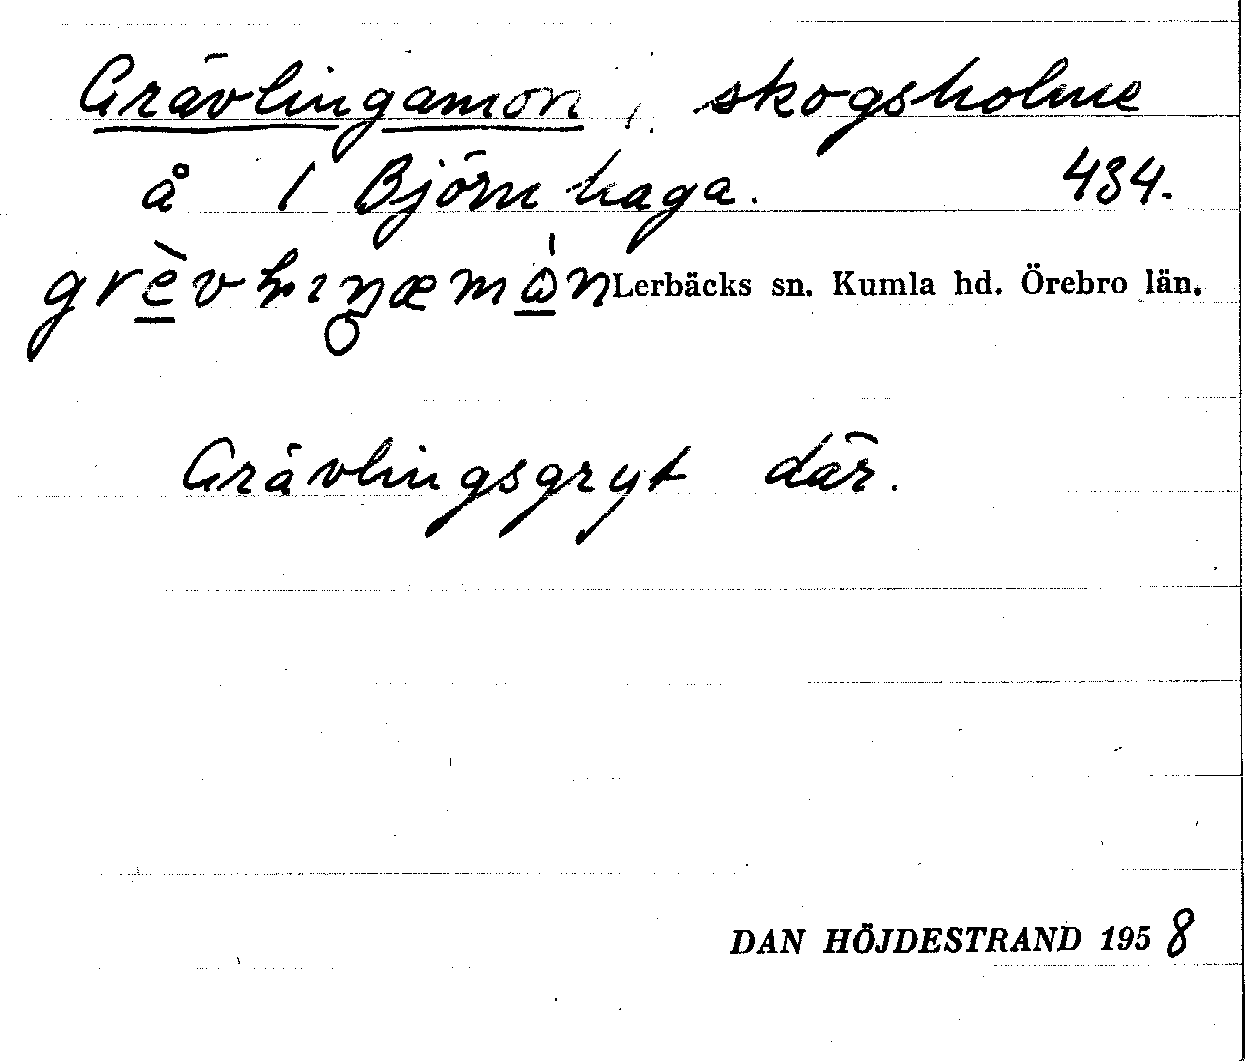 Grävlingamon, skogsholme
å 1 Björnhaga. 434.
Lerbäcks sn. Kumla hd. Örebro län.
Grävlingsgryt där.
DAN HÖJDESTRAND 1958